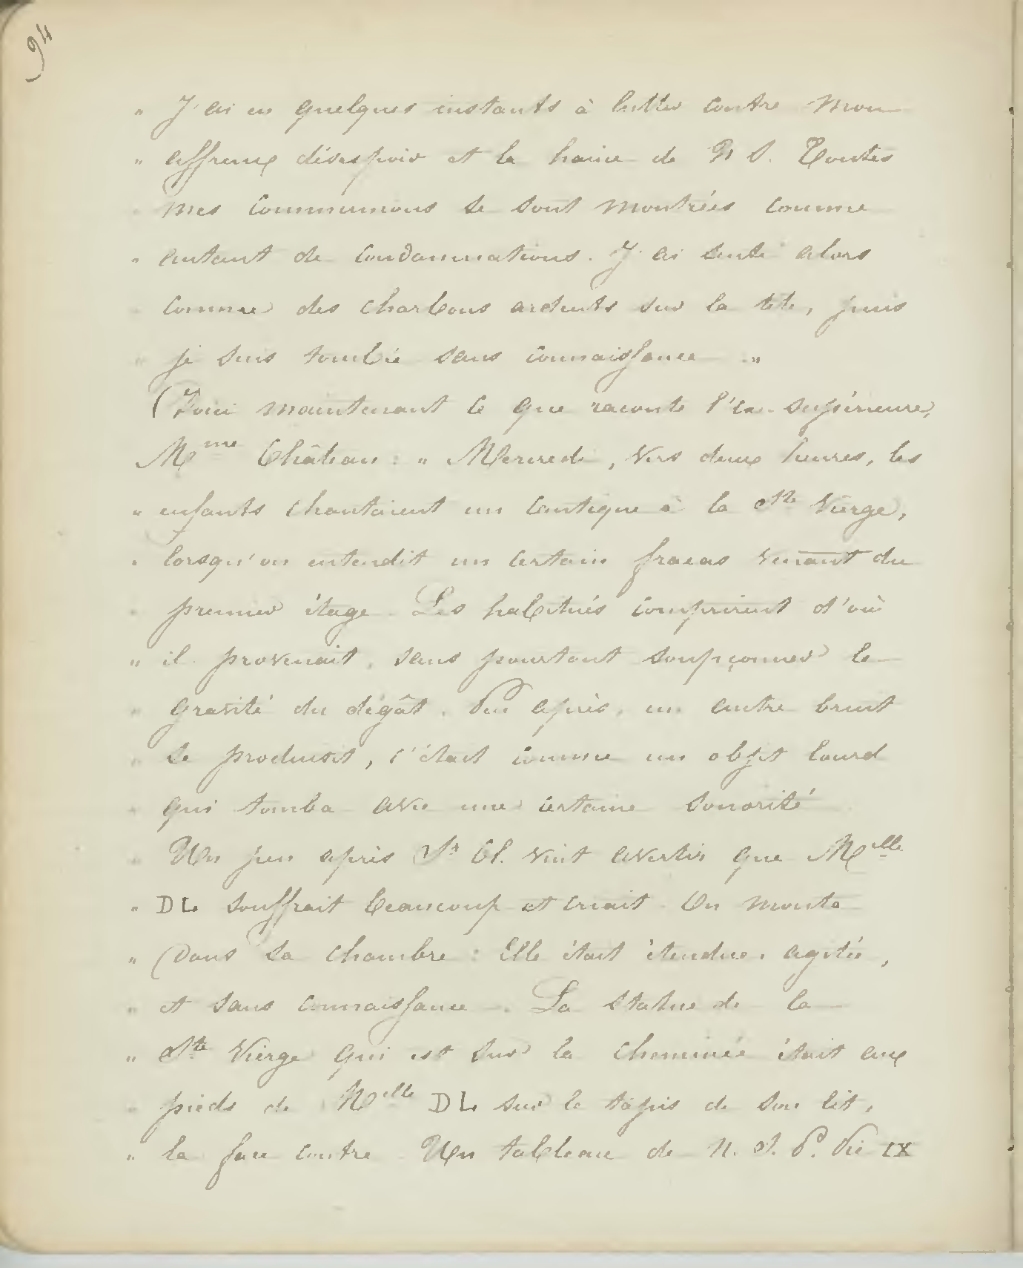 94
" J'ai eu quelques instants à lutter contre mon
" affreux désespoir et la haine de N S. Toutes
" mes communions se sont montrées comme
" autant de condamnations. J'ai senti alors
" comme des charbons ardents sur la tête, puis
" je suis tombée sans connaissance . "
(Voici maintenant ce que raconte l'ex-supérieure,
Mme Château : " Mercredi, vers deux heures, les
" enfants chantaient un cantique à la Ste Vierge,
" lorsqu'on entendit un certain fracas venant du
" premier étage. Les habitués comprirent d'où
" il provenait, sans pourtant soupçonner la
" gravité du dégât. Peu après, un autre bruit
" se produisit, c'était comme un objet lourd
" qui tomba avec une certaine sonorité
" Un peu après Sr Cl. vint avertir que Melle
" DL souffrait beaucoup et criait. On monta
" dans sa chambre : Elle était étendue, agitée,
" et sans connaissance . La statue de la
" Ste Vierge qui est sur la cheminée était aux
" pieds de Melle DL sur le tapis de son lit,
" la face contre Un tableau de N. S. P. Pie IX